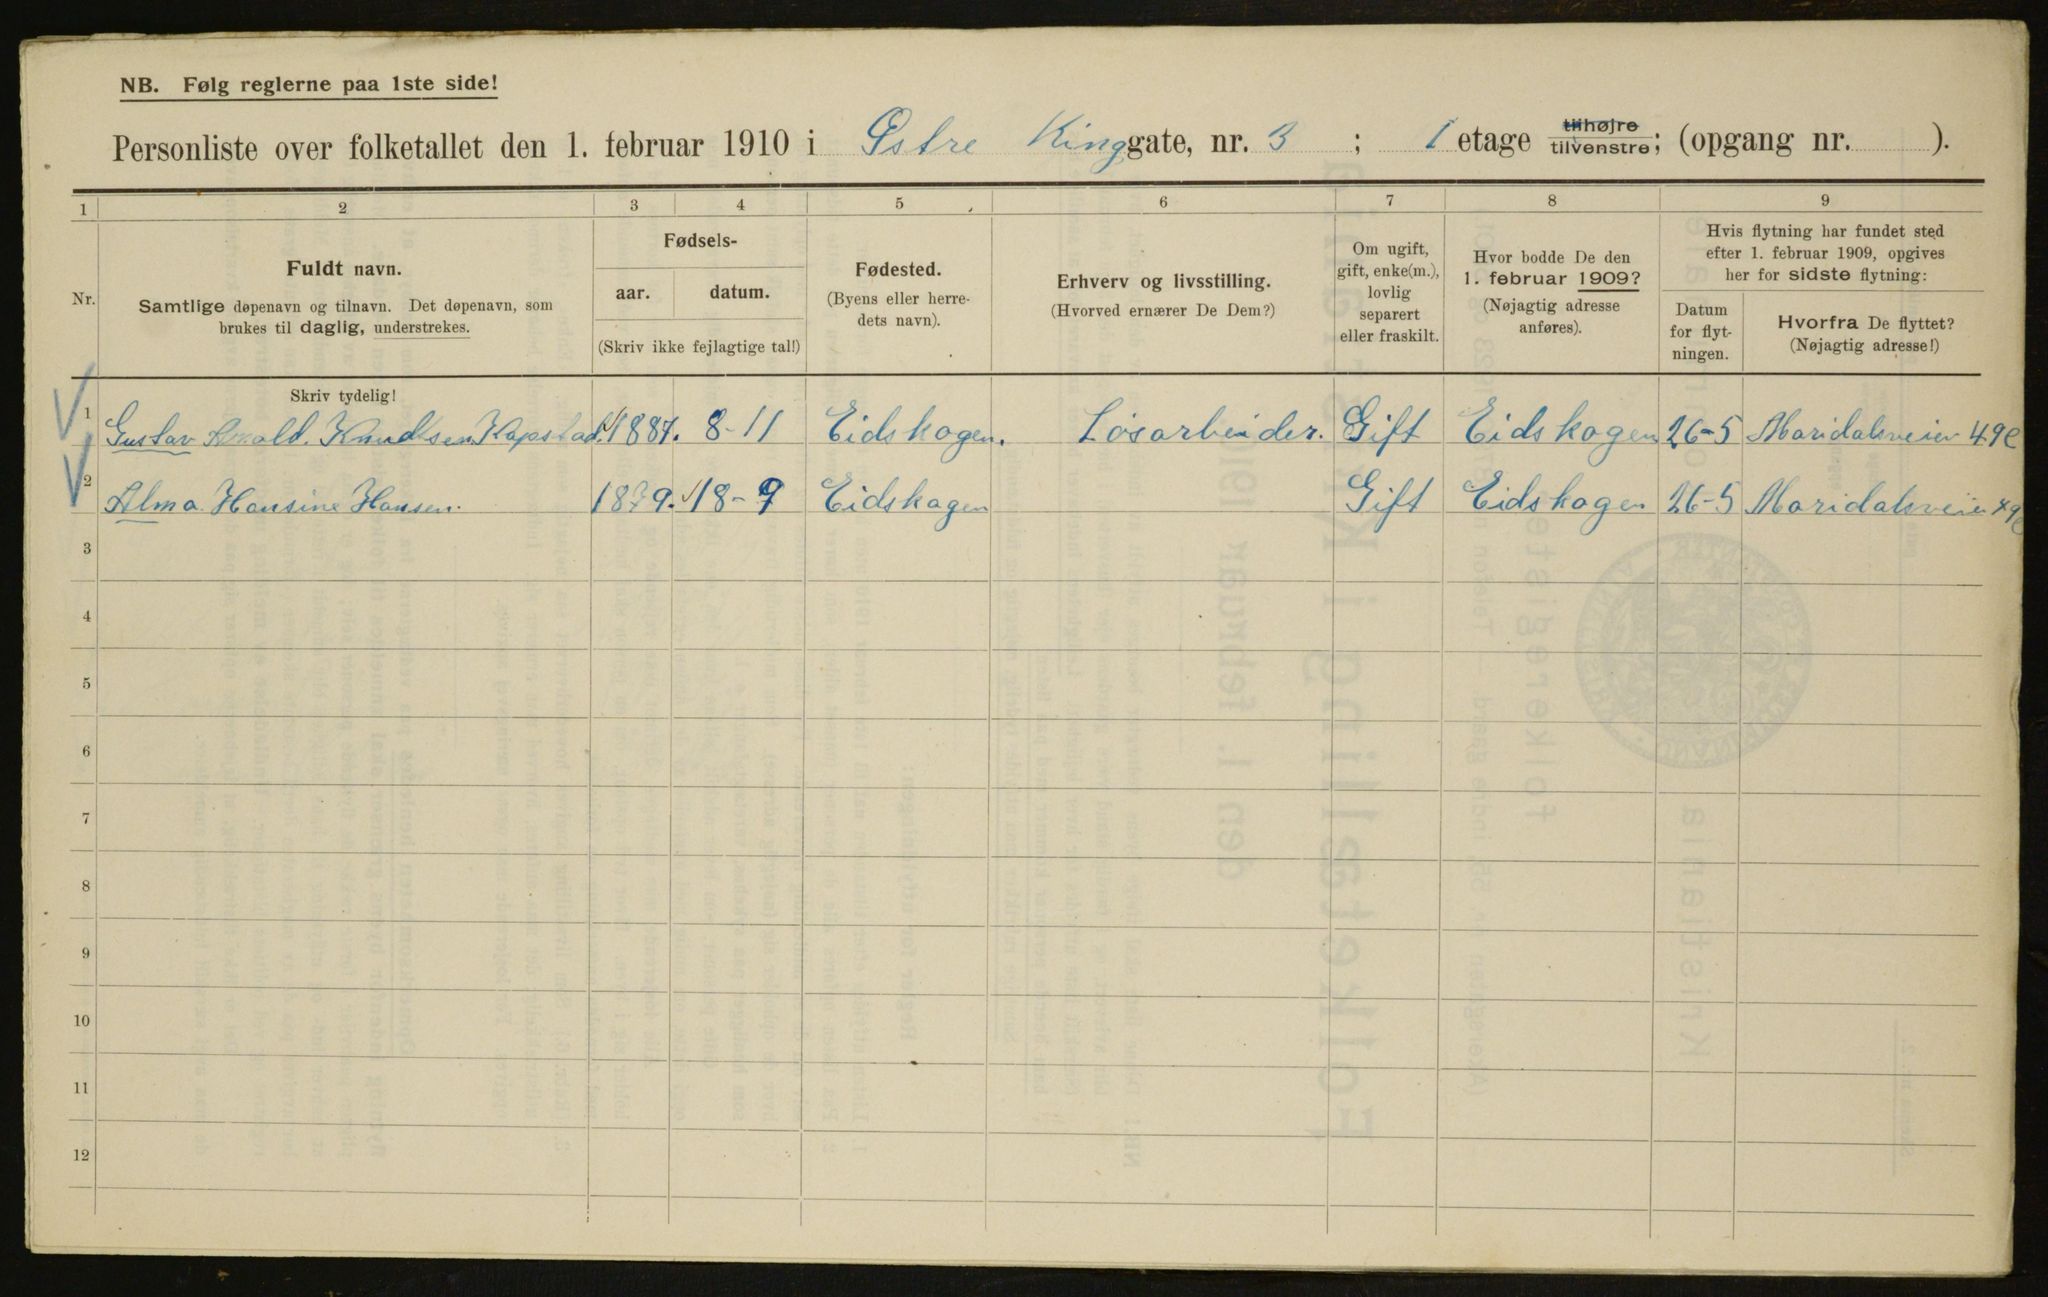 NB. Følg reglerne paa 1ste side!
Personliste over folketallet den 1. februar 1910 i Østre King gate, nr. 3 ; 1 etage tilhøjre tilvenstre; (opgang nr. ).
1 2 3 4 5 6 7 8 9
Nr.
Fuldt navn.
Samtlige døpenavn og tilnavn. Det døpenavn, som
brukes til daglig, understrekes.
Fødsels-
aar. datum.
(Skriv ikke fejlagtige tal!)
Fødested.
(Byens eller herre-
dets navn).
Erhverv og livsstilling.
(Hvorved ernærer De Dem?)
Om ugift,
gift, enke(m.),
lovlig
separert
eller fraskilt.
Hvor bodde De den
1. februar 1909?
(Nøjagtig adresse
anføres).
Hvis flytning har fundet sted
efter 1. februar 1909, opgives
her for sidste flytning:
Datum
for flyt-
ningen.
Hvorfra De flyttet?
(Nøjagtig adresse!)
Skriv tydelig!
1 Gustav Knudsen Kapstad. 1887. 8-11 Eidskogen. Løsarbeider. Gift Eidskogen 26-5 Maridalsveien 49e
2 Alma Hansine Hansen. 1879. 18-9 Eidskogen Gift Eidskogen 26-5 Maridalsveien 49e
3
4
5
6
7
8
9
10
11
12